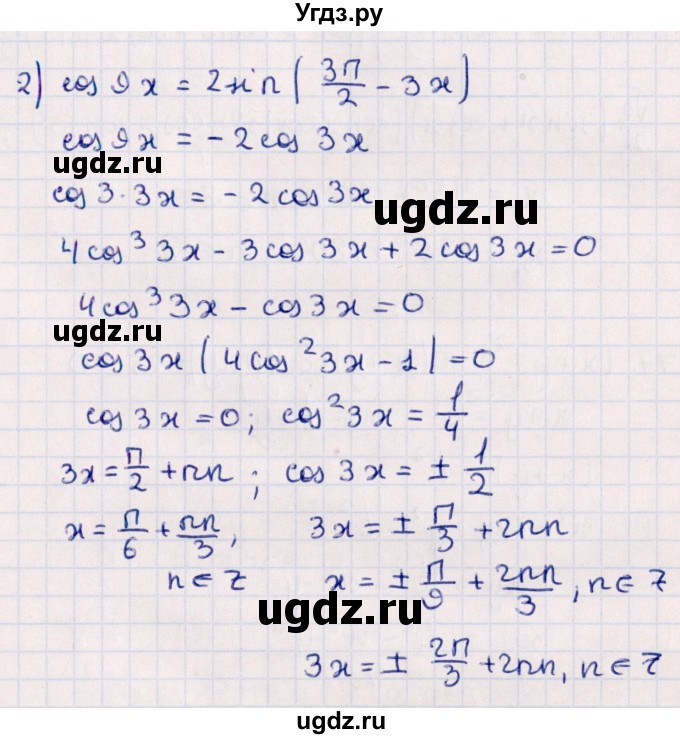 Угдз.ру
2) cos 9x = 2sin(3π/2 - 3x)
cos 9x = -2cos 3x
ugdz.ru
cos 3·3x = -2cos 3x
ugdz.ru
4cos³3x - 3cos 3x + 2cos 3x = 0
4cos³3x - cos 3x = 0
ugdz.ru
cos 3x (4cos²3x - 1) = 0
cos 3x = 0; cos²3x = 1/4
3x = π/2 + πn; cos 3x = ± 1/2
x = π/6 + πn/3, 3x = ± π/3 + 2πn
n ∈ Z x = ± π/9 + 2πn/3, n ∈ Z
ugdz.ru
3x = ± 2π/3 + 2πn, n ∈ Z
ugdz.ru
ugdz.ru